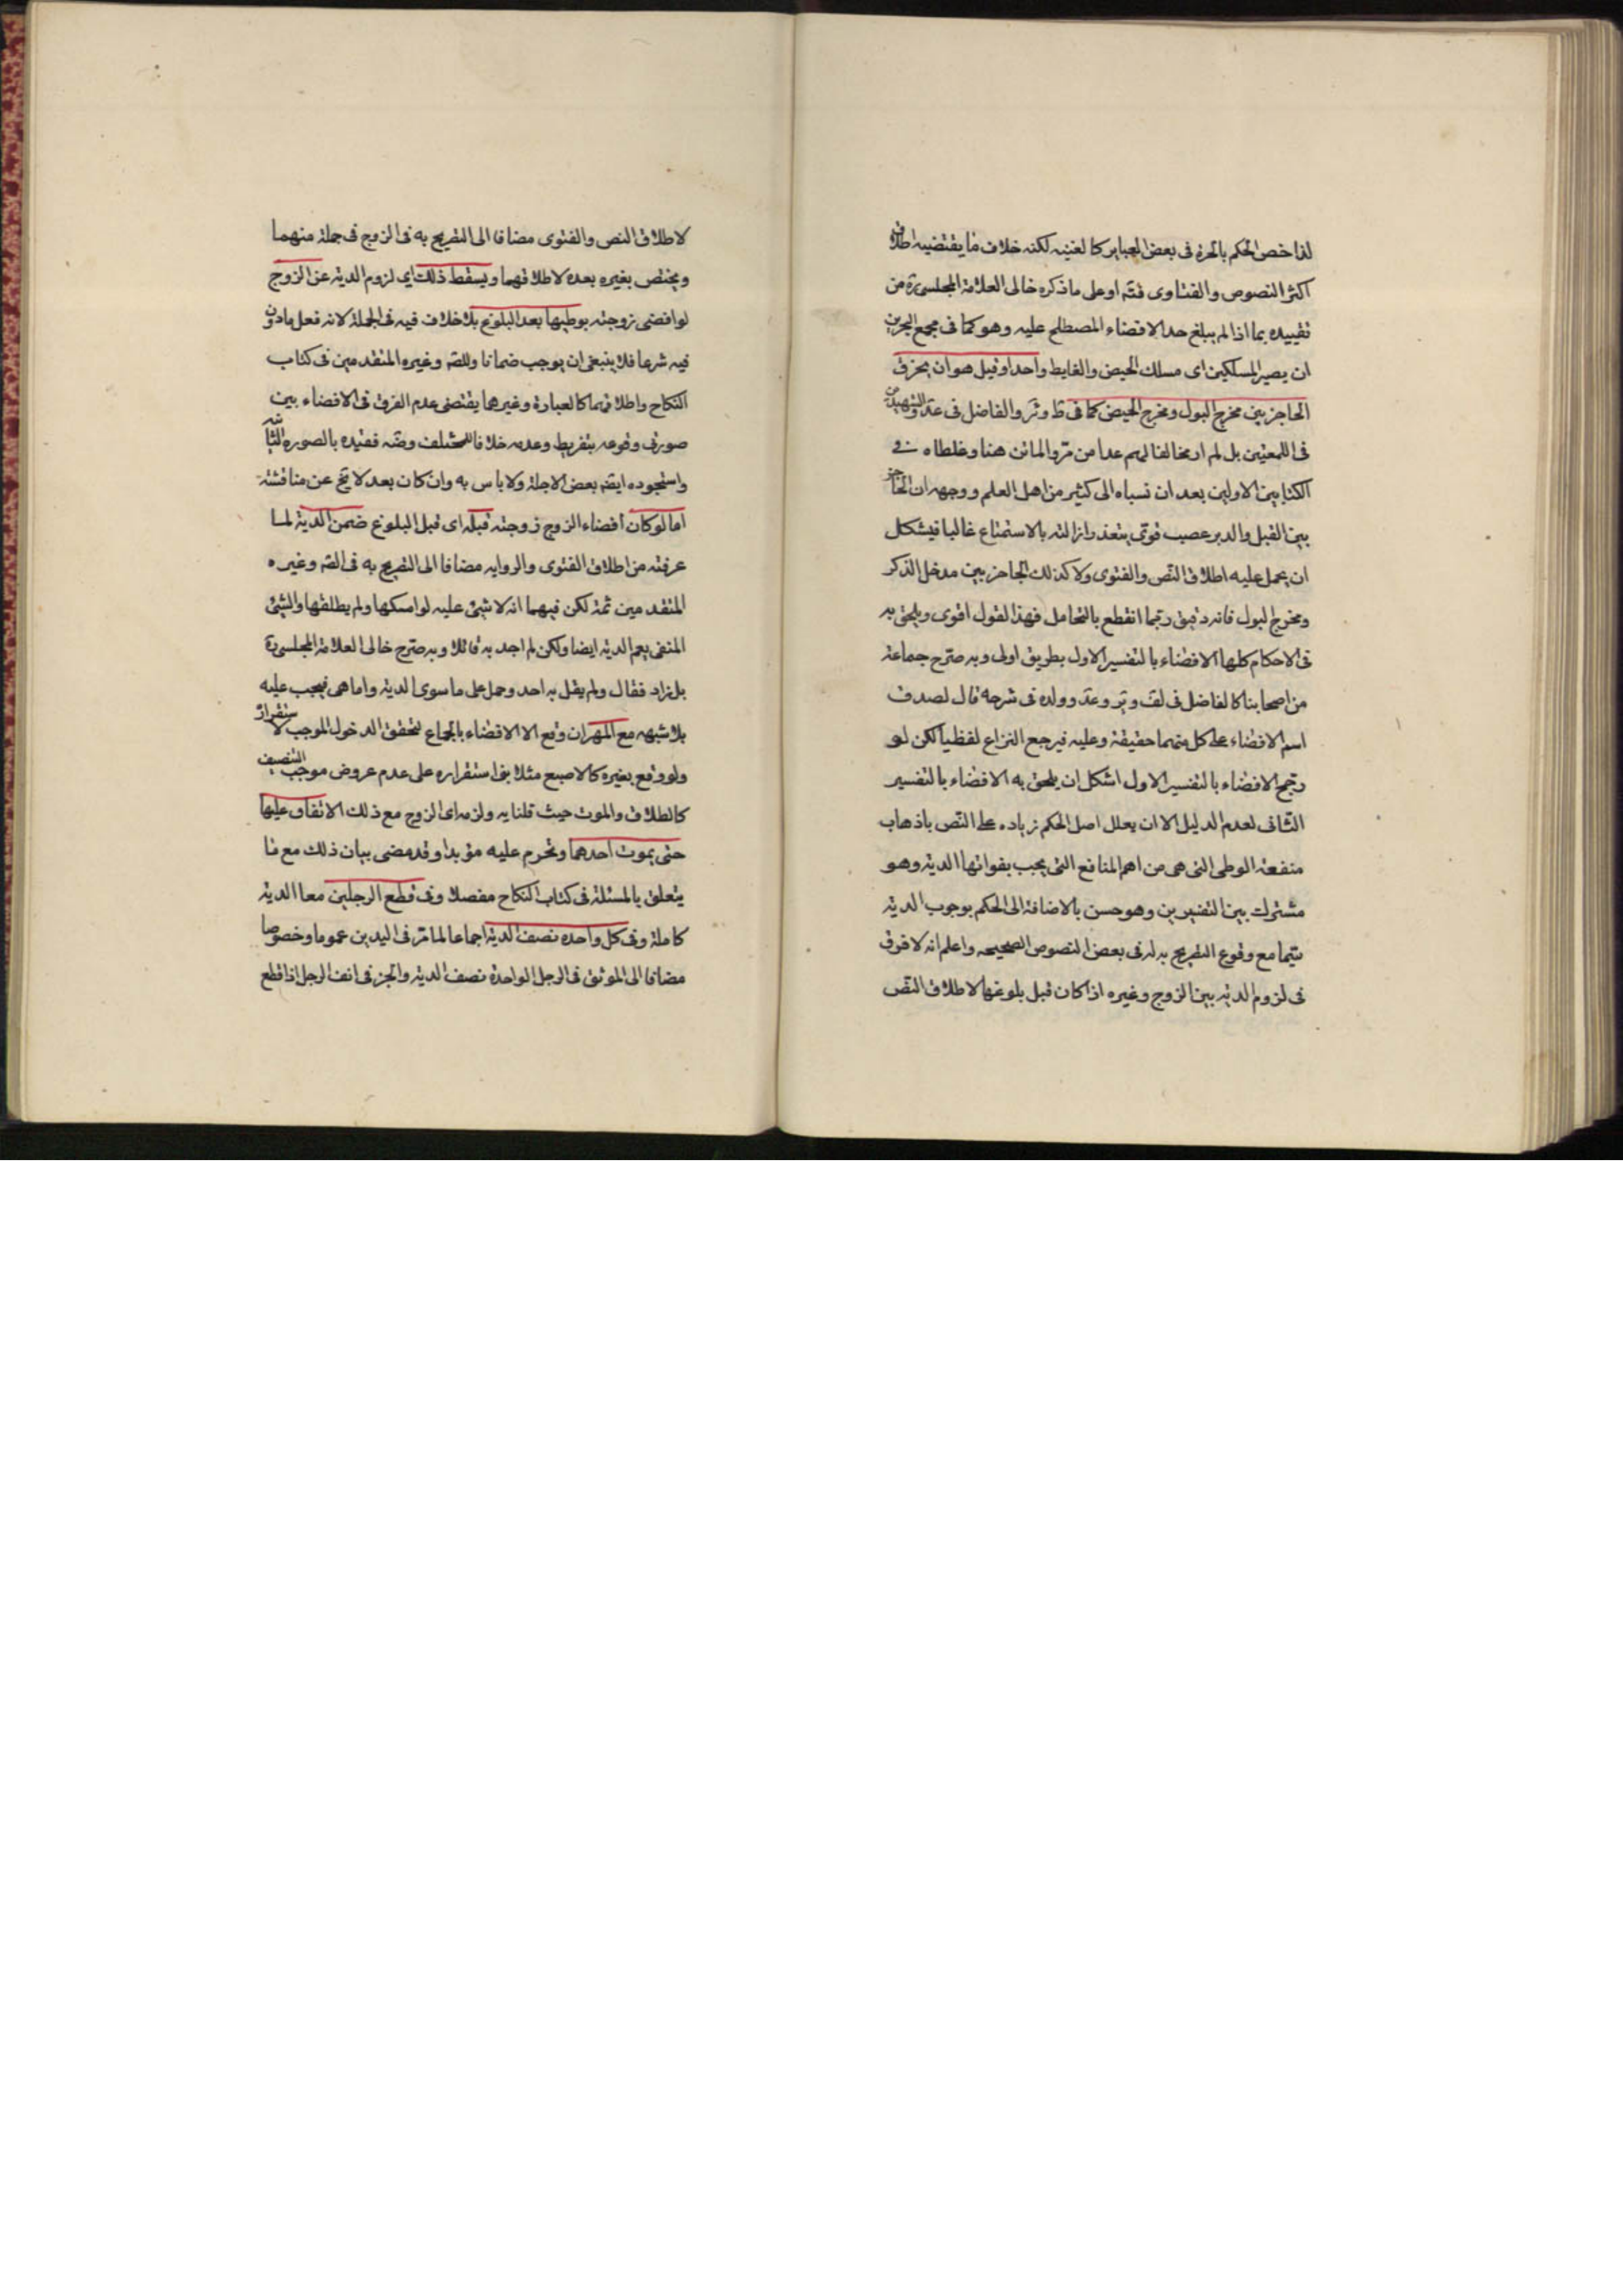 لذا خص الحكم بالحرة فى بعض العباير كالغنيه لكنه خلاف ما يقتضيه اطلاق
اكثر النصوص والفتاوى فتم او على ما ذكره خالى العلامة المجلسى ره من
تقييده بما اذا لم يبلغ حد الافضاء المصطلح عليه وهو كما فى مجمع البحرين
ان يصير المسلكين اى مسلك الحيض والغايط واحدا وقيل هو ان يخرق
الحاجز بين مخرج البول ومخرج الحيض كما فى ط وئر والفاضل فى عد والشهيدين
فى اللمعتين بل لم ار مخالفا لهم عدا من مر والماتن هنا وغلطاه فى
الكتابين الاولين بعد ان نسباه الى كثير من اهل العلم ووجهه ان الحاجز
بين القبل والدبر عصب قوى يتعذر ازالته بالاستمتاع غالبا فيشكل
ان يحمل عليه اطلاق النص والفتوى ولا كذلك الحاجز بين مدخل الذكر
ومخرج البول فانه رقيق ربما انقطع بالتحامل فهذا القول اقوى ويلحق به
فى الاحكام كلها الافضاء بالتفسير الاول بطريق اولى وبه صرح جماعة
من اصحابنا كالفاضل فى لف وير وعد وولده فى شرحه قال لصدق
اسم الافضاء على كل منهما حقيقة وعليه فيرجع النزاع لفظيا لكن لو
رجح الافضاء بالتفسير الاول اشكل ان يلحق به الافضاء بالتفسير
الثانى لعدم الدليل الا ان يعلل اصل الحكم زياده على النص باذهاب
منفعة الوطى التى هى من اهم المنافع التى يجب بفواتها الدية وهو
مشترك بين التفسيرين وهو حسن بالاضافة الى الحكم بوجوب الدية
سيما مع وقوع التصريح به له فى بعض النصوص الصحيحه واعلم انه لا فرق
فى لزوم الدية بين الزوج وغيره اذا كان قبل بلوغها لاطلاق النص
لاطلاق النص والفتوى مضافا الى التصريح به فى الزوج فى جملة منهما
ويختص بغيره بعده لاطلاقهما ويسقط ذلك اى لزوم الدية عن الزوج
لو افضى زوجته بوطيها بعد البلوغ بلا خلاف فيه فى الجملة لانه فعل ماذون
فيه شرعا فلا ينبغى ان يوجب ضمانا وللصه وغيره المتقدمين فى كتاب
النكاح واطلاقهما كالعبارة وغيرها يقتضى عدم الفرق فى الافضاء بين
صورتى وقوعه بتفريط وعدمه خلافا للمختلف وضه فقيده بالصوره الثانيه
واستجوده ايضه بعض الاجلة ولا باس به وان كان بعد لا يخ عن مناقشة
اما لو كان افضاء الزوج زوجته قبله اى قبل البلوغ ضمن الدية لما
عرفته من اطلاق الفتوى والروايه مضافا الى التصريح به فى الصه وغيره
المتقدمين ثمة لكن فيهما انه لا شىء عليه لو امسكها ولم يطلقها والشىء
المنفى يعم الدية ايضا ولكن لم اجد به قائلا وبه صرح خالى العلامة المجلسى ره
بل زاد فقال ولم يقل به احد وحمل على ما سوى الدية واما هى فيجب عليه
بلا شبهه مع المهر ان وقع الافضاء بالجماع لتحقق الدخول الموجب لاستقراره
ولو وقع بغيره كالاصبع مثلا يق استقراره على عدم عروض موجب التنصيف
كالطلاق والموت حيث قلنا به ولزمه اى الزوج مع ذلك الانفاق عليها
حتى يموت احدهما وتحرم عليه مؤبدا وقد مضى بيان ذلك مع ما
يتعلق بالمسئلة فى كتاب النكاح مفصلا وفى قطع الرجلين معا الدية
كاملة وفى كل واحده نصف الدية اجماعا لما مر فى اليدين عموما وخصوصا
مضافا الى الموثق فى الرجل الواحدة نصف الدية والخبر فى انف الرجل اذا قطع